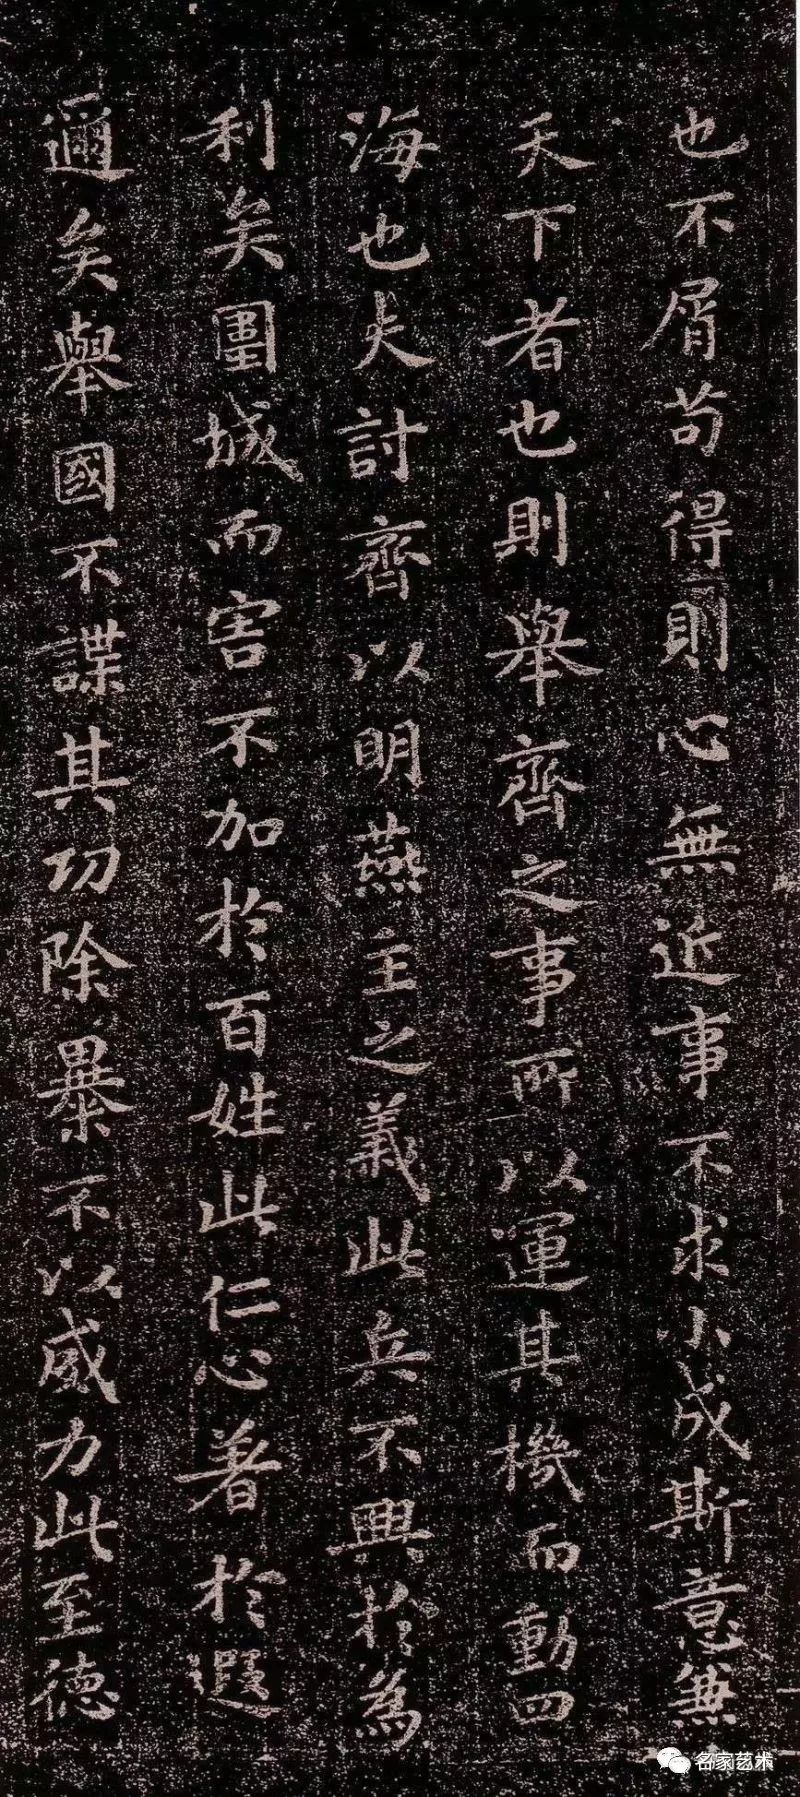 也不屑苟得則心無近事不求小成斯意兼
天下者也則舉齊之事所以運其機而動四
海也夫討齊以明燕主之義此兵不興於為
利矣圍城而害不加於百姓此仁心著於遐
邇矣舉國不謀其功除暴不以威力此至德
名家艺术